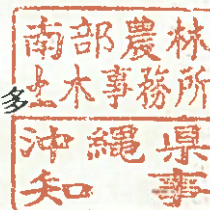 南部農林
土木事務所
多
沖縄県
知事